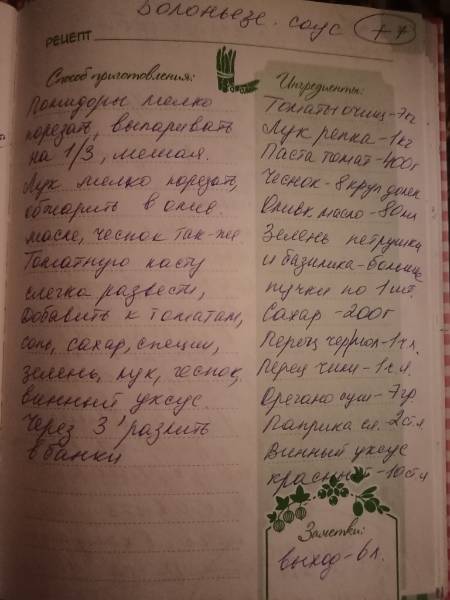 Болоньезе. соус ++
РЕЦЕПТ
Способ приготовления:
Помидоры мелко
порезать, выпаривать
на 1/3, мешая.
Лук мелко порезать,
обжарить в олив.
масле, чеснок так-же.
Томатную пасту
слегка развести,
добавить к томатам,
соль, сахар, специи,
зелень, лук, чеснок,
винный уксус.
Через 3' разлить
в банки
Ингредиенты:
Томаты очищ - 7кг
Лук репка - 1кг
Паста томат - 400г
Чеснок - 8 круп долек
Оливк масло - 80мл
Зелень петрушки
и базилика - большие
пучки по 1 шт.
Сахар - 200г
Перец чер мол - 1ч л.
Перец чили - 1ч.л.
Орегано суш - 7гр.
Паприка сл. 2ст л
Винный уксус
красный - 10ст л
Заметки:
выход - 6 л.